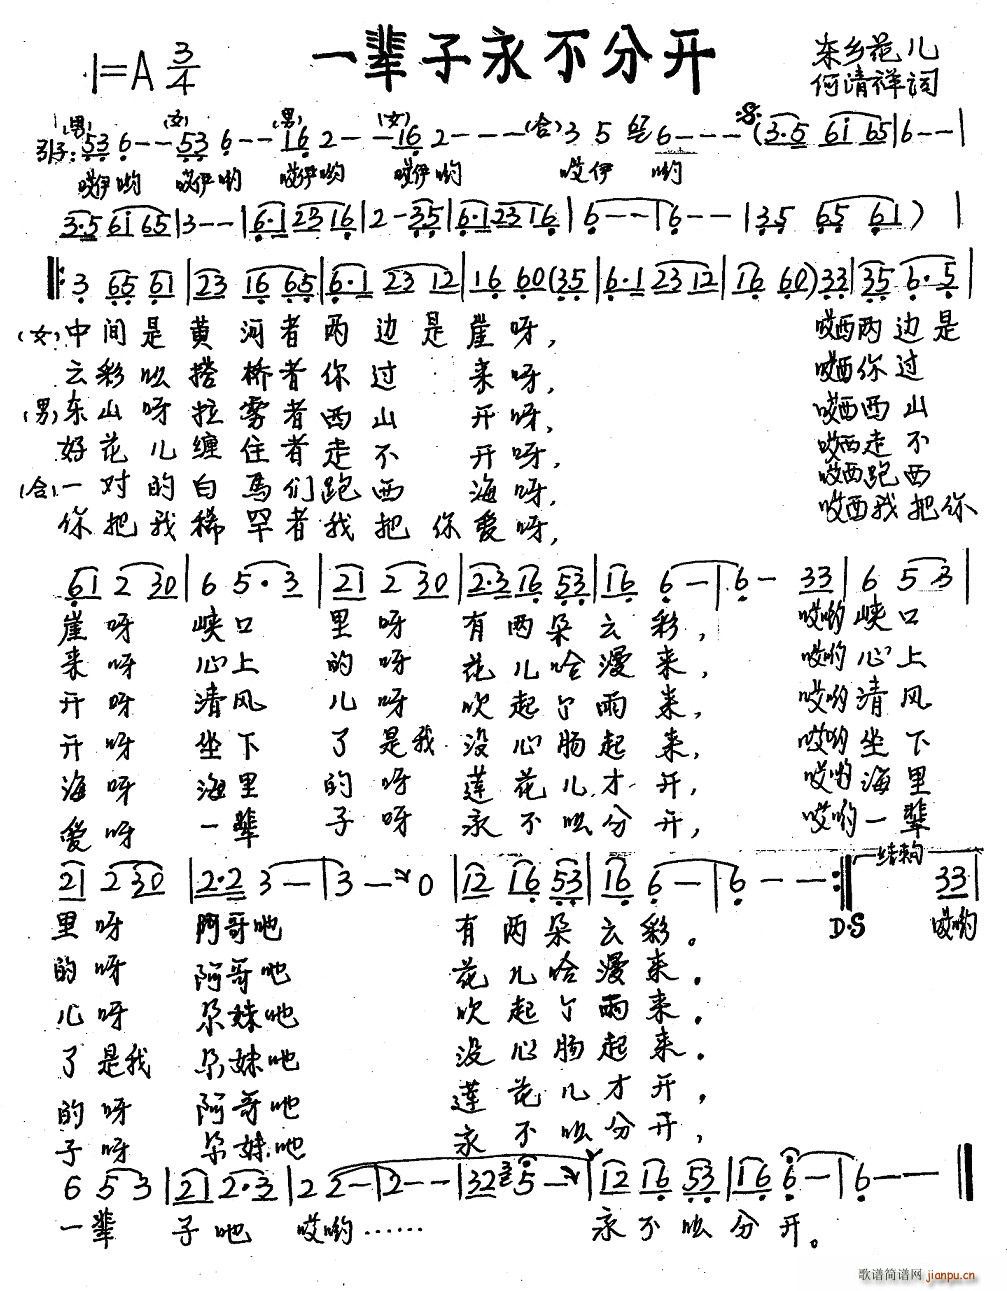 一辈子永不分开
1=A 3/4
东乡花儿
何清祥词
(男) (女) (男) (女)
引子: 53 6·--53 6--16 2--16 2---(合)3 5 6---(3·5 6i 65|6--|
哎伊哟 哎伊哟 哎伊哟 哎伊哟 哎伊 哟
3·5 6i 65|3--|6·1 23 16|2-35|6·1 23 16|6--|6--|35 65 61)|
‖:3 65 61|23 16 65|6·1 23 12|16 60(35|6·1 23 12|16 60)33|35 6·5|
(女)中间是黄河者两边是崖呀, 哎西两边是
云彩吆搭桥者你过 来呀, 哎西你过
(男)东山呀拉雾者西山 开呀, 哎西西山
好花儿缠住者走不 开呀, 哎西走不
(合)一对的白马们跑西 海呀, 哎西跑西
你把我稀罕者我把你爱呀, 哎西我把你
61 2 30|6 5·3|21 2 30|2·3 16 53|16 6-|6- 33|6 5 3|
崖呀 峡口 里呀 有两朵云彩, 哎哟峡口
来呀 心上 的呀 花儿哈漫来, 哎哟心上
开呀 清风 儿呀 吹起个雨来, 哎哟清风
开呀 坐下 了是我 没心肠起来, 哎哟坐下
海呀 海里 的呀 莲花儿才开, 哎哟海里
爱呀 一辈 子呀 永不吆分开, 哎哟一辈
结构
21 2 30|2·2 3-|3- 0|12 16 53|16 6-|6--:‖ 33|
里呀 阿哥吔 有两朵云彩。 D·S 哎哟
的呀 阿哥吔 花儿哈漫来.
儿呀 尕妹吔 吹起个雨来.
了是我 尕妹吔 没心肠起来.
的呀 阿哥吔 莲花儿才开,
子呀 尕妹吔 永不吆分开,
6 5 3|21 2·3|2 2-|2--|32 3 5-|12 16 53|16 6-|6--‖
一辈 子吔 哎哟…… 永不吆分开。
歌谱简谱网 jianpu.cn